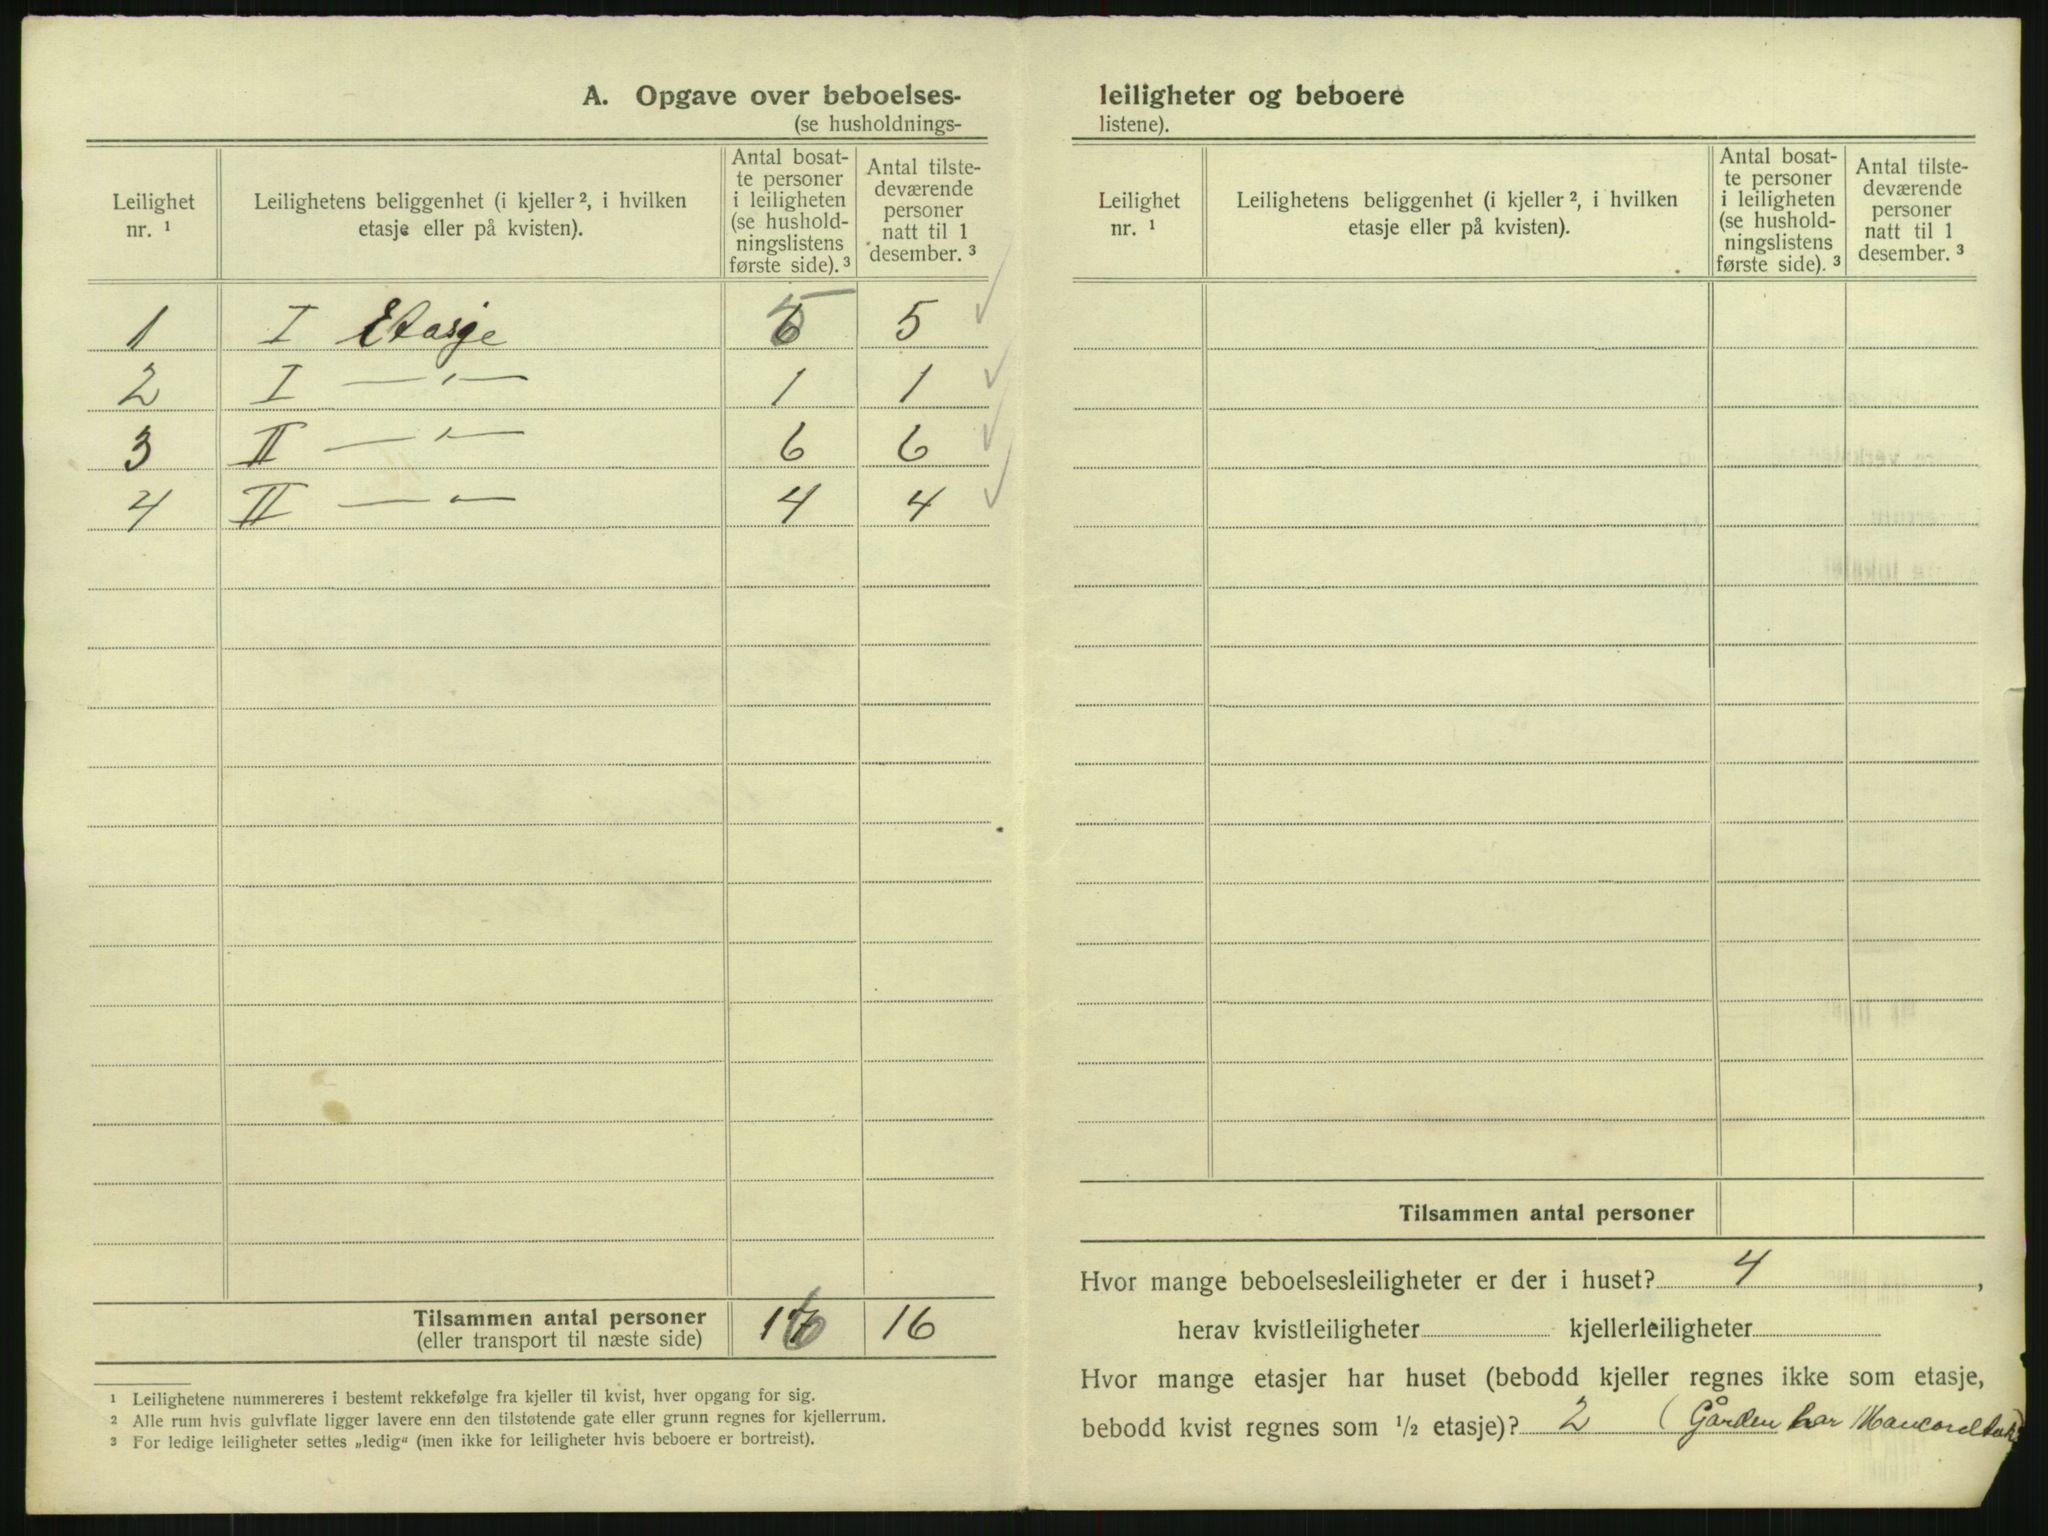 A. Opgave over beboelses-
(se husholdnings-
Leilighet nr. ¹ | Leilighetens beliggenhet (i kjeller ², i hvilken etasje eller på kvisten). | Antal bosatte personer i leiligheten (se husholdningslistens første side). ³ | Antal tilstedeværende personer natt til 1 desember. ³
1 I Etasje 5 5
2 I — " — 1 1
3 II — " — 6 6
4 II — " — 4 4
Tilsammen antal personer 16 16
(eller transport til næste side)
¹ Leilighetene nummereres i bestemt rekkefølge fra kjeller til kvist, hver opgang for sig.
² Alle rum hvis gulvflate ligger lavere enn den tilstøtende gate eller grunn regnes for kjellerrum.
³ For ledige leiligheter settes „ledig“ (men ikke for leiligheter hvis beboere er bortreist).
leiligheter og beboere
listene).
Leilighet nr. ¹ | Leilighetens beliggenhet (i kjeller ², i hvilken etasje eller på kvisten). | Antal bosatte personer i leiligheten (se husholdningslistens første side). ³ | Antal tilstedeværende personer natt til 1 desember. ³
Tilsammen antal personer
Hvor mange beboelsesleiligheter er der i huset? 4 ,
herav kvistleiligheter kjellerleiligheter
Hvor mange etasjer har huset (bebodd kjeller regnes ikke som etasje,
bebodd kvist regnes som 1/2 etasje)? 2 (Gården har